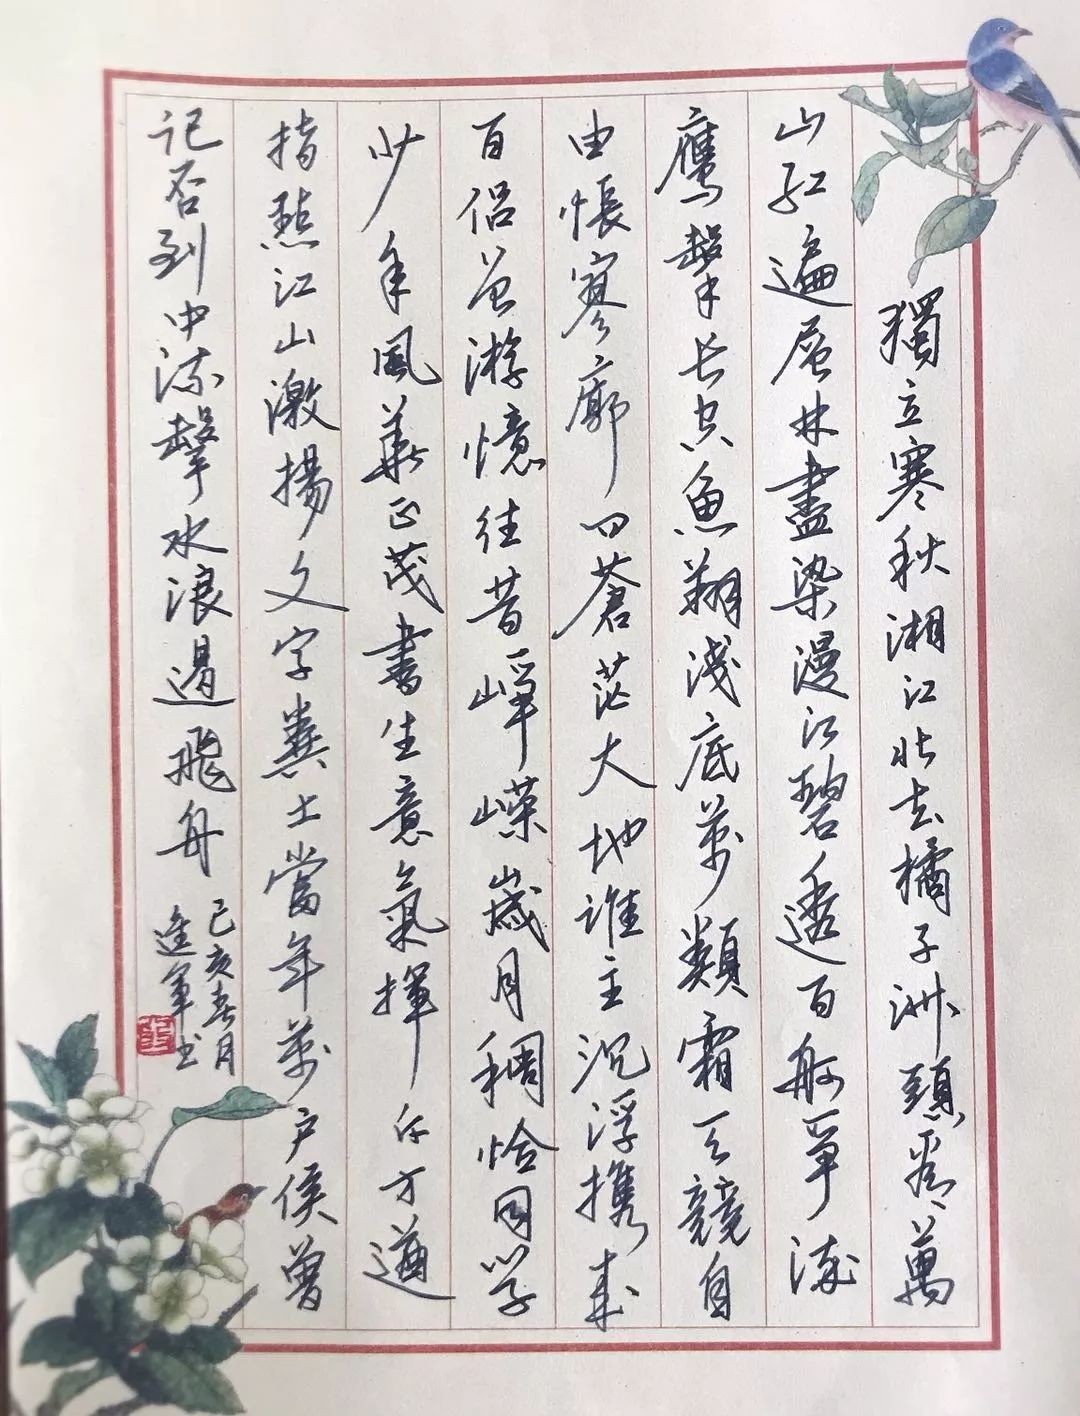 獨立寒秋湘江北去橘子洲頭看萬
山紅遍層林盡染漫江碧透百舸爭流
鷹擊长空魚翔淺底萬類霜天競自
由悵寥廓问蒼茫大地谁主沉浮携来
百侶曾游憶往昔崢嶸歲月稠恰同学
少年風華正茂書生意氣揮斥方遒
指點江山激揚文字糞土當年萬户侯曾
记否到中流擊水浪遏飛舟
己亥春月
進軍书